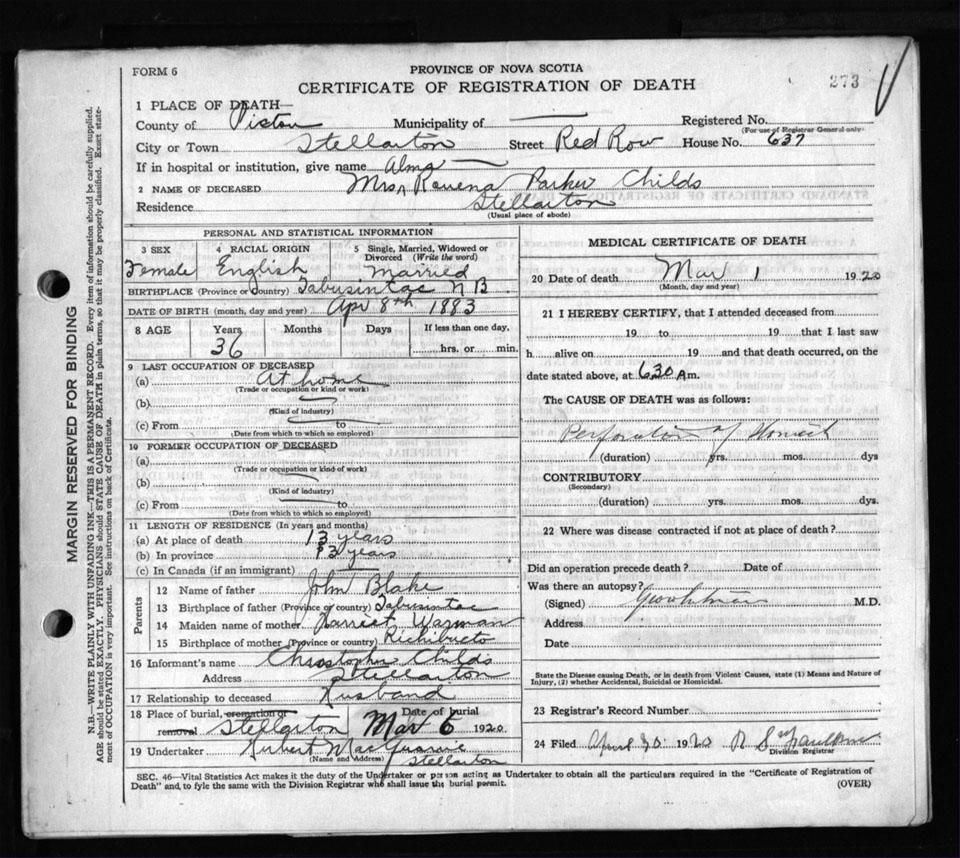 FORM 6
PROVINCE OF NOVA SCOTIA
CERTIFICATE OF REGISTRATION OF DEATH
273
1 PLACE OF DEATH—
County of Pictou Municipality of — Registered No.
(For use of Registrar General only)
City or Town Stellarton Street Red Row House No. 637
If in hospital or institution, give name —
Alma
2 NAME OF DECEASED Mrs Ravena Parker Childs
Residence Stellarton
(Usual place of abode)
PERSONAL AND STATISTICAL INFORMATION
3 SEX 4 RACIAL ORIGIN 5 Single, Married, Widowed or Divorced (Write the word)
Female English Married
BIRTHPLACE (Province or Country) Tabusintac N B
DATE OF BIRTH (month, day and year) Apr 8th 1883
8 AGE Years Months Days If less than one day,
36 hrs. or min.
9 LAST OCCUPATION OF DECEASED
(a) At home
(Trade or occupation or kind of work)
(b)
(Kind of industry)
(c) From to
(Date from which to which so employed)
10 FORMER OCCUPATION OF DECEASED
(a)
(Trade or occupation or kind of work)
(b)
(Kind of industry)
(c) From to
(Date from which to which so employed)
11 LENGTH OF RESIDENCE (In years and months)
(a) At place of death 13 years
(b) In province 13 years
(c) In Canada (if an immigrant)
Parents
12 Name of father John Blake
13 Birthplace of father (Province or country) Tabusintac
14 Maiden name of mother Harriet
15 Birthplace of mother (Province or country) Richibucto
16 Informant's name Christopher Childs
Address Stellarton
17 Relationship to deceased Husband
18 Place of burial, cremation or removal Stellarton Date of burial Mar 6 1920
19 Undertaker Hurbert
(Name and Address) Stellarton
MEDICAL CERTIFICATE OF DEATH
20 Date of death Mar 1 1920
(Month, day and year)
21 I HEREBY CERTIFY, that I attended deceased from
19 to 19 that I last saw
h alive on 19 and that death occurred, on the
date stated above, at 6 30 A m.
The CAUSE OF DEATH was as follows:
Perforation of Stomach
(duration) yrs. mos. dys
CONTRIBUTORY
(Secondary)
(duration) yrs. mos. dys.
22 Where was disease contracted if not at place of death?
Did an operation precede death? Date of
Was there an autopsy?
(Signed) M.D.
Address
Date
State the Disease causing Death, or in death from Violent Causes, state (1) Means and Nature of
Injury, (2) whether Accidental, Suicidal or Homicidal.
23 Registrar's Record Number
24 Filed April 1920 R S
Division Registrar
SEC. 46—Vital Statistics Act makes it the duty of the Undertaker or person acting as Undertaker to obtain all the particulars required in the "Certificate of Registration of
Death" and, to fyle the same with the Division Registrar who shall issue the burial permit.
(OVER)
MARGIN RESERVED FOR BINDING
N.B.—WRITE PLAINLY WITH UNFADING INK—THIS IS A PERMANENT RECORD. Every item of information should be carefully supplied.
AGE should be stated EXACTLY. PHYSICIANS should STATE CAUSE OF DEATH in plain terms, so that it may be properly classified. Exact state-
ment of OCCUPATION is very important. See instructions on back of Certificate.